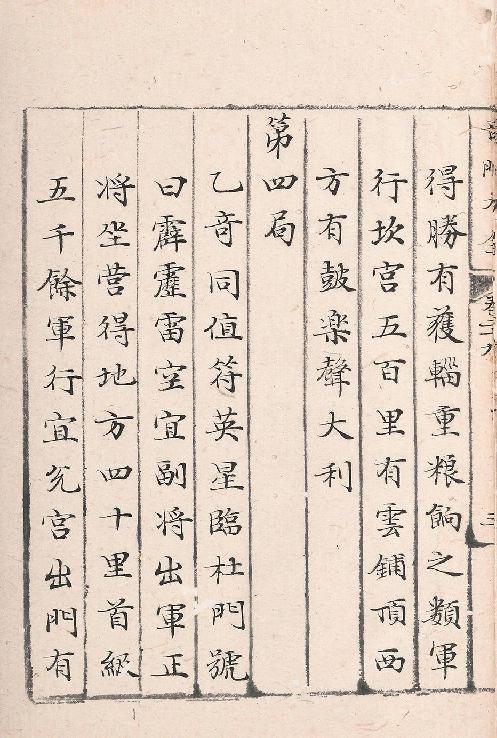 得勝有獲輜重粮餉之類軍
行坎宮五百里有雲鋪頂西
方有鼓楽聲大利
第四局
乙奇同值符英星臨杜門號
曰霹靂雷空宜副将出軍正
将坐营得地方四十里首級
五千餘軍行宜兊宮出門有